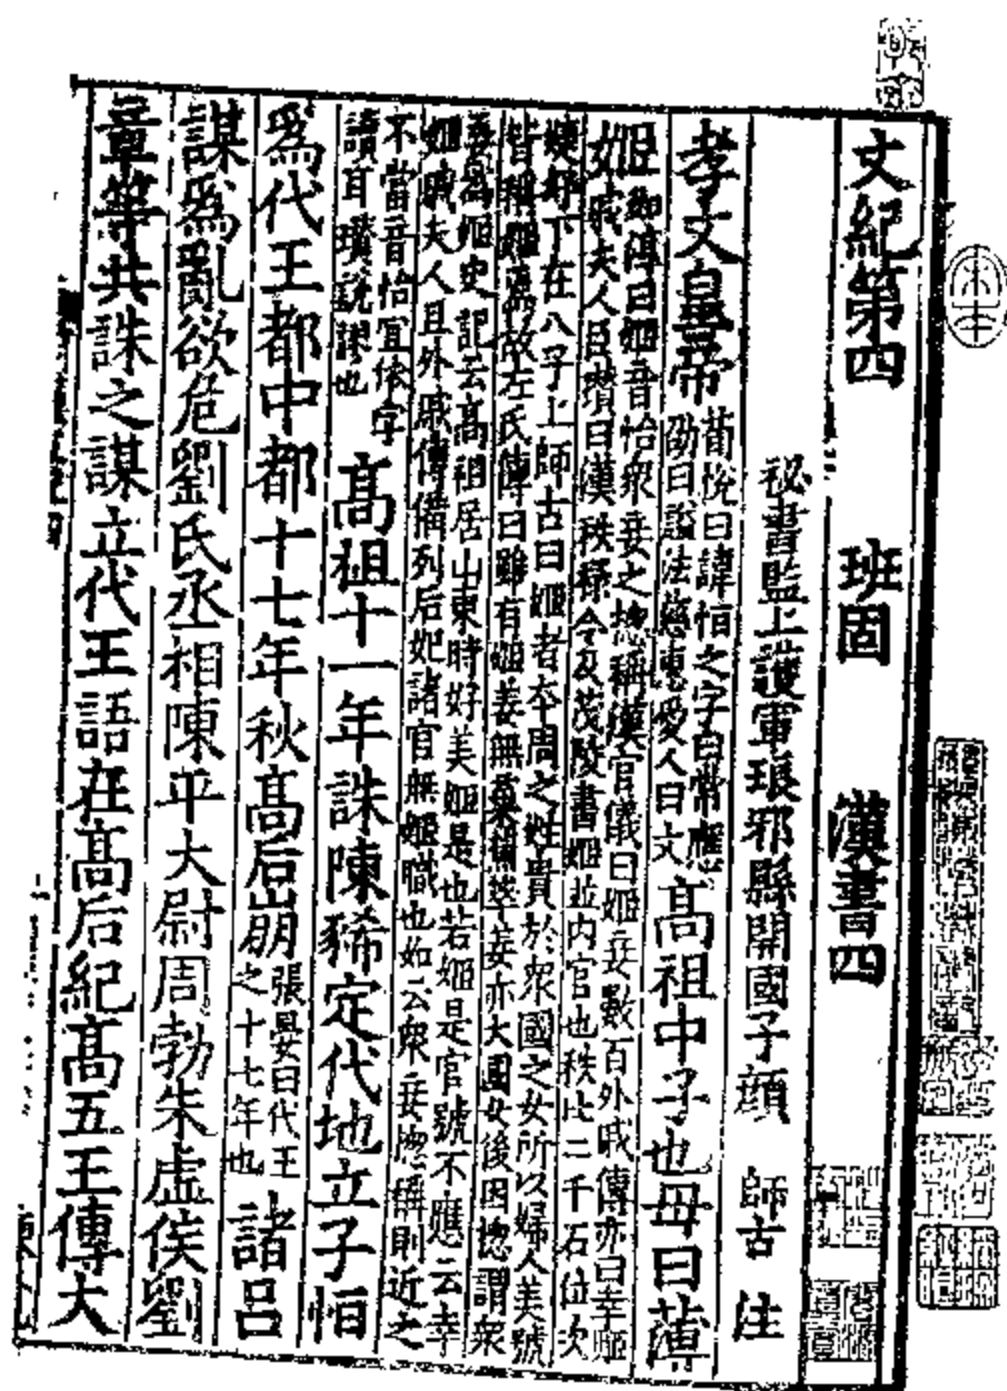 文紀第四 班固 漢書四
秘書監上護軍琅邪縣開國子顔 師古 注
孝文皇帝
荀悅曰諱恒之字曰常應
劭曰謚法慈惠愛人曰文
高祖中子也母曰薄
姬
如淳曰姬音怡衆妾之揔稱漢官儀曰姬妾數百外戚傳亦曰幸姬
如戚夫人臣瓚曰漢秩祿令及茂陵書姬並内官也秩比二千石位次
婕妤下在八子上師古曰姬者本周之姓貴於衆國之女所以婦人美號
皆稱姬焉故左氏傳曰雖有姬姜無棄蕉萃姜亦大國女後因揔謂衆
妾爲姬史記云髙祖居山東時好美姬是也若姬是官號不應云幸
姬戚夫人且外戚傳備列后妃諸官無姬職也如云衆妾揔稱則近之
不當音怡宜依字
讀耳瓚說謬也
髙祖十一年誅陳豨定代地立子恒
爲代王都中都十七年秋髙后崩
張晏曰代王
之十七年也
諸呂
謀爲亂欲危劉氏丞相陳平大尉周勃朱虛侯劉
章等共誅之謀立代王語在髙后紀髙五王傳大